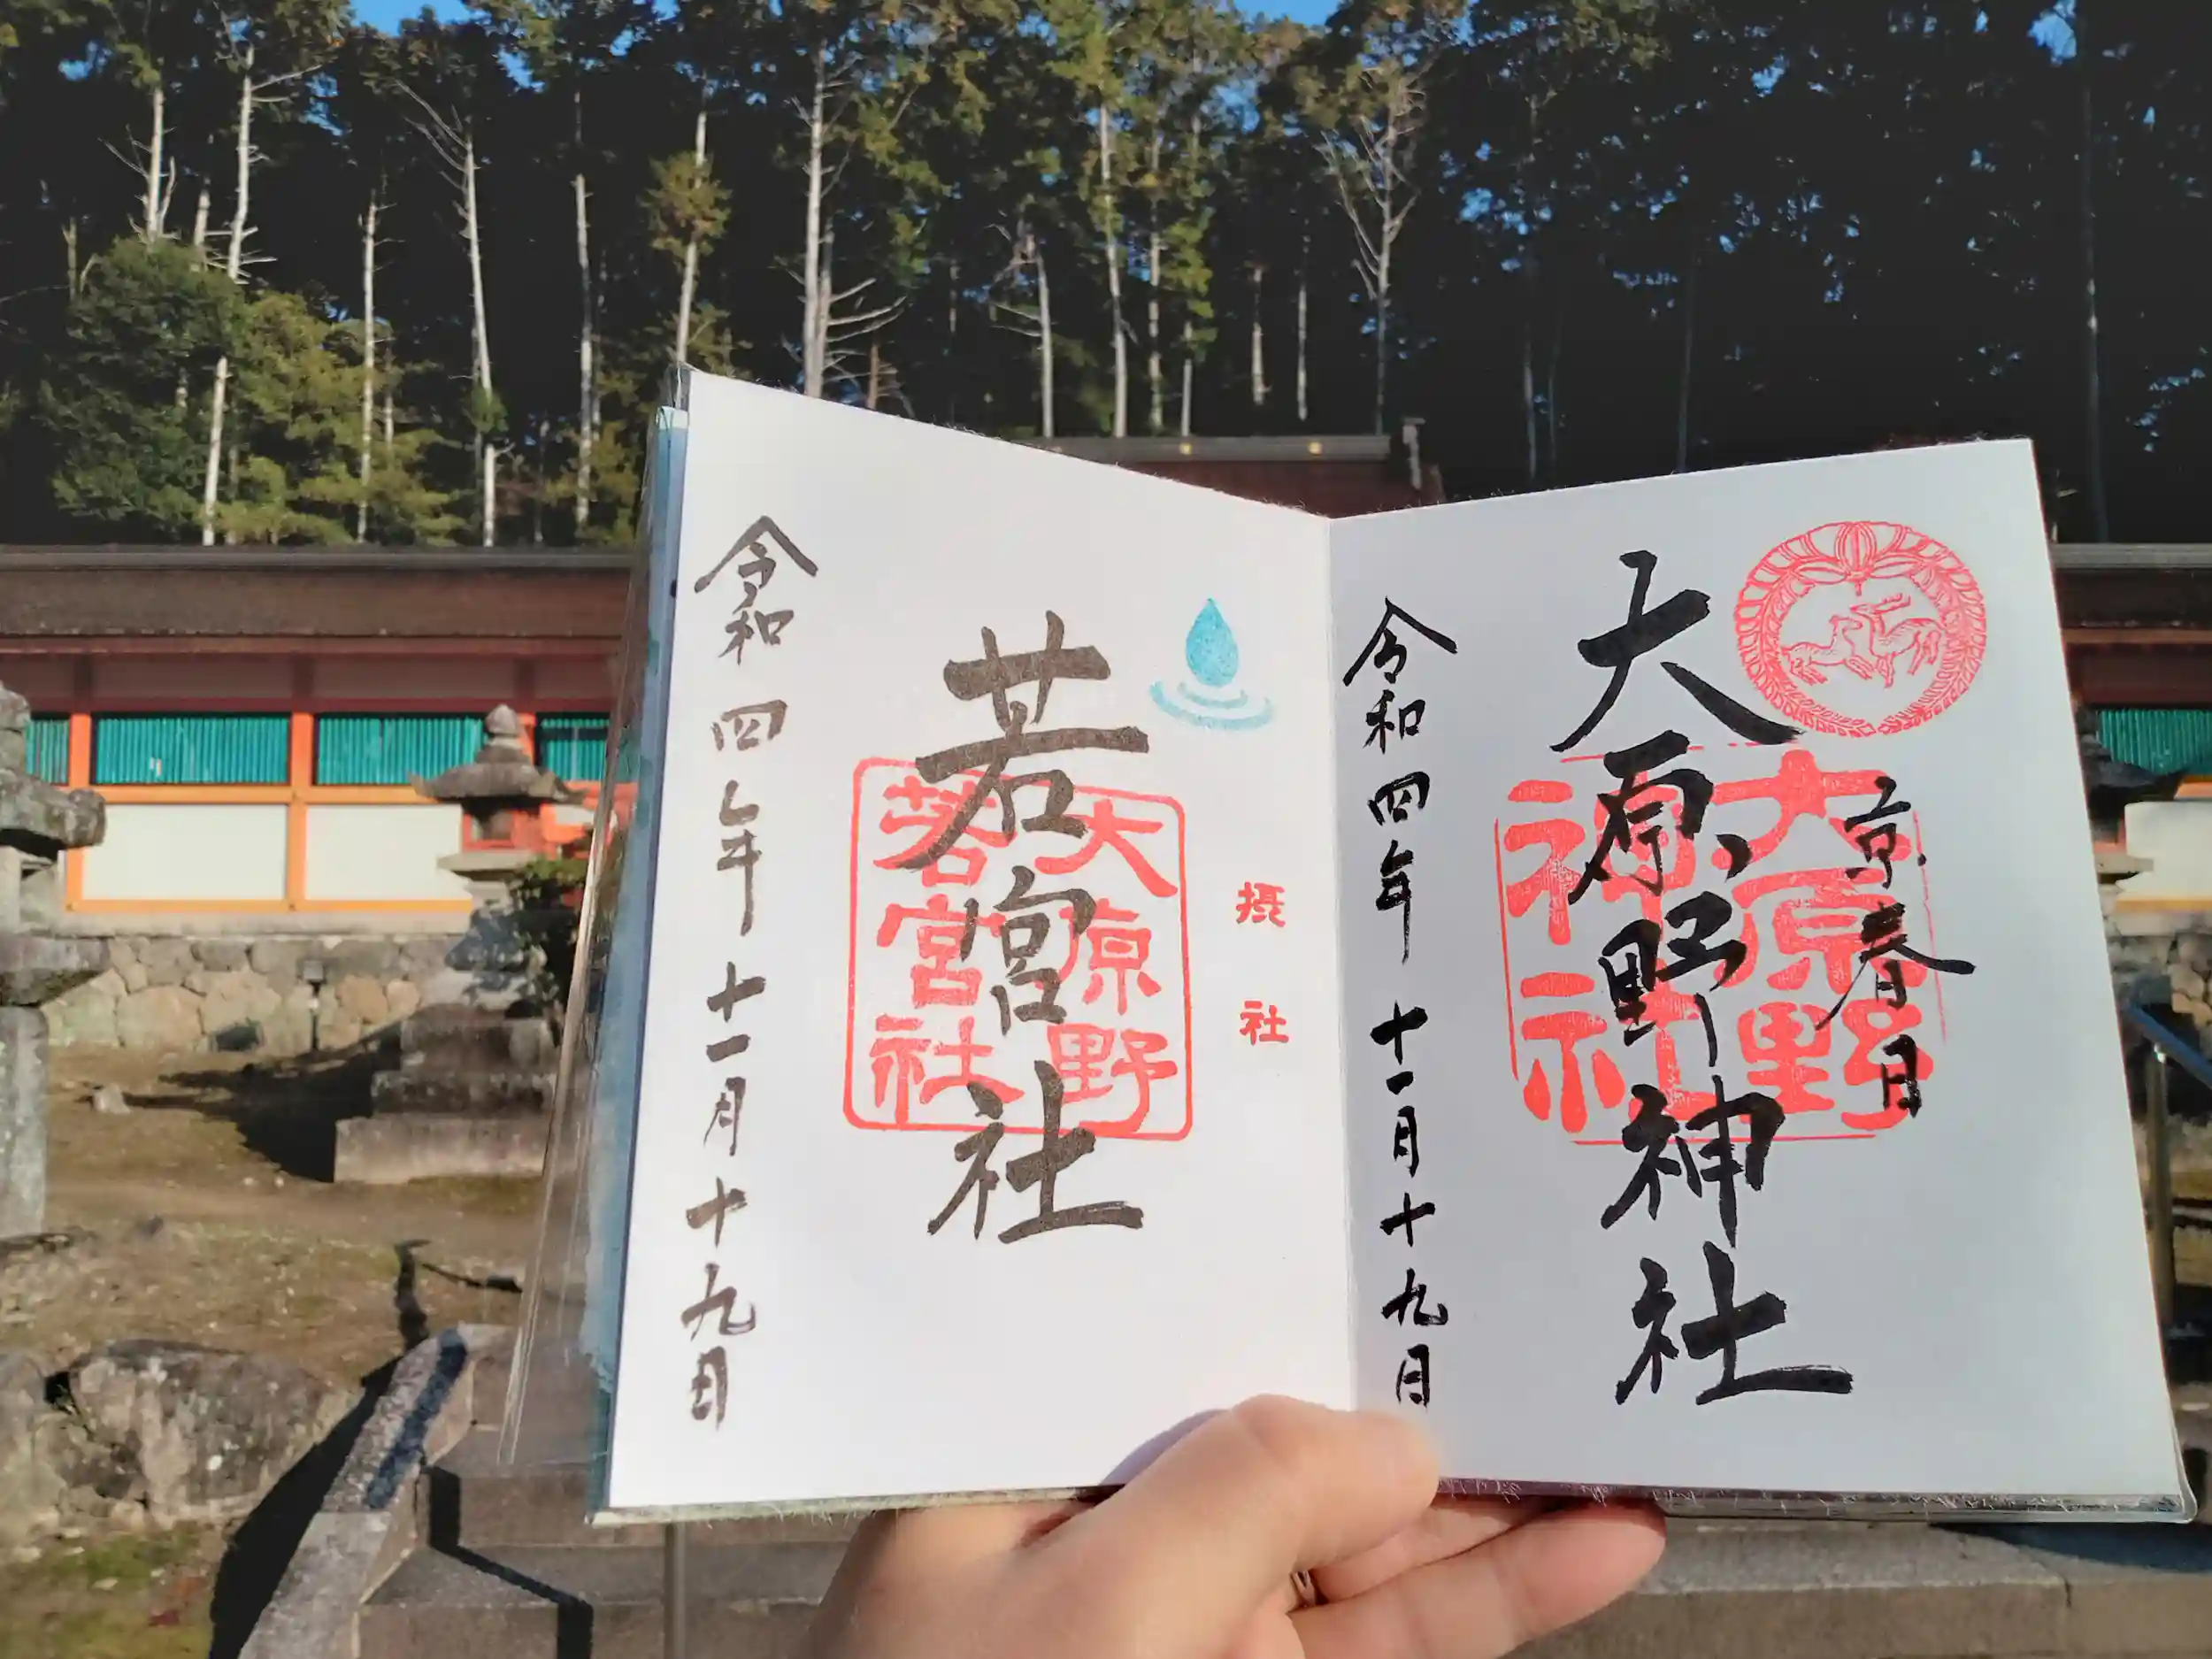 京春日
大原野神社
大原野
神社
令和四年十一月十九日
摂社
若宮社
大原野
若宮社
令和四年十一月十九日